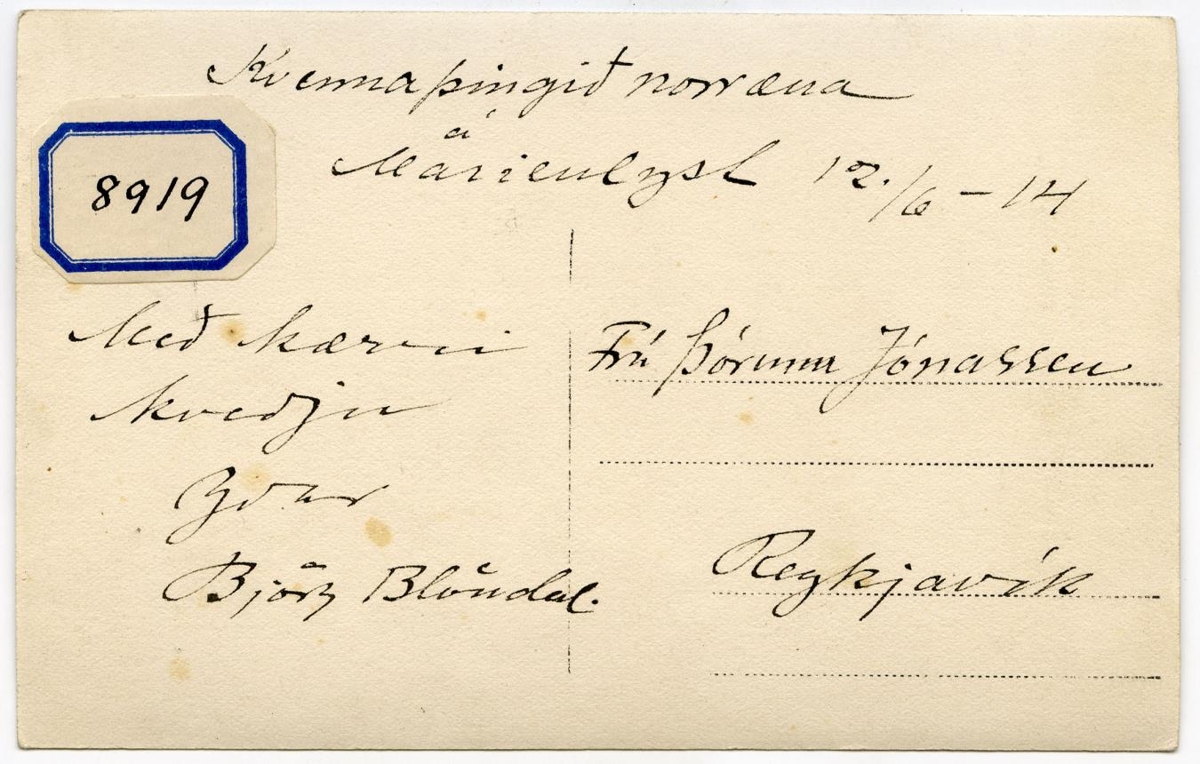 Kvennaþingið norræna
á
Marienlyst 12./6 – 14
8919
Með kærri
kveðju
Yðar
Björg Blöndal.
Frú Þórunn Jónassen
Reykjavík